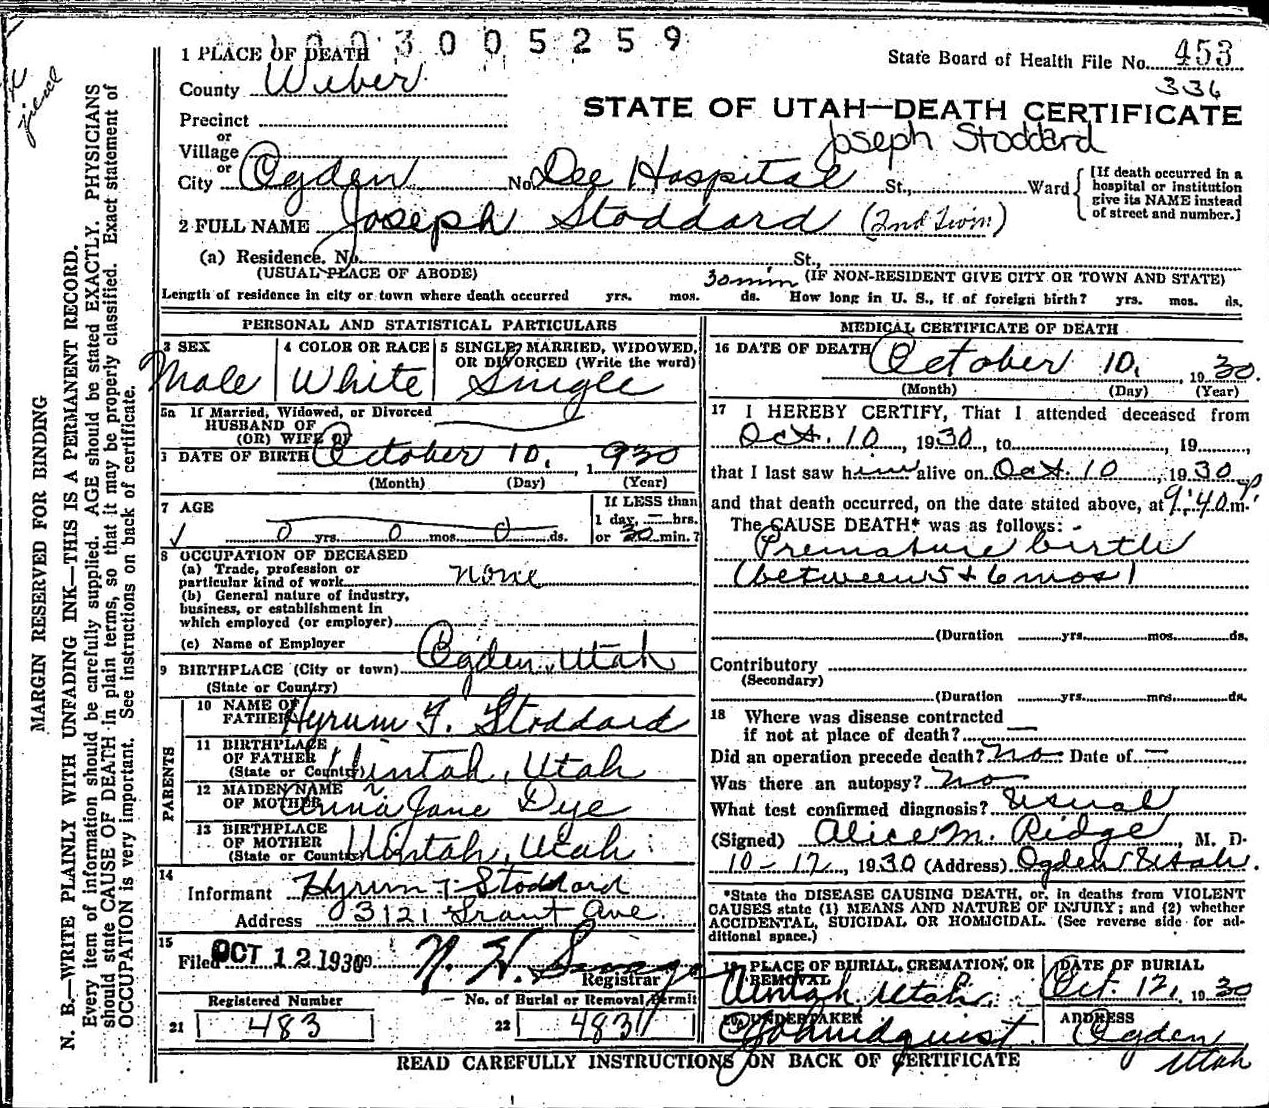 1003005259
1 PLACE OF DEATH
State Board of Health File No. 453
336
County Weber
STATE OF UTAH—DEATH CERTIFICATE
Precinct
or
Joseph Stoddard
Village
or
City Ogden No. Dee Hospital St., Ward
[If death occurred in a
hospital or institution
give its NAME instead
of street and number.]
2 FULL NAME Joseph Stoddard (2nd Twin)
(a) Residence, No. St.,
(USUAL PLACE OF ABODE) (IF NON-RESIDENT GIVE CITY OR TOWN AND STATE)
30 min
Length of residence in city or town where death occurred yrs. mos. ds. How long in U. S., if of foreign birth? yrs. mos. ds.
PERSONAL AND STATISTICAL PARTICULARS
3 SEX 4 COLOR OR RACE 5 SINGLE, MARRIED, WIDOWED,
OR DIVORCED (Write the word)
Male White Single
5a If Married, Widowed, or Divorced
HUSBAND OF
(OR) WIFE OF
DATE OF BIRTH October 10, 1930
(Month) (Day) (Year)
7 AGE
If LESS than
1 day, — hrs.
0 yrs. 0 mos. 0 ds. or 30 min.?
8 OCCUPATION OF DECEASED
(a) Trade, profession or
particular kind of work none
(b) General nature of industry,
business, or establishment in
which employed (or employer)
(c) Name of Employer
9 BIRTHPLACE (City or town) Ogden, Utah
(State or Country)
PARENTS
10 NAME OF
FATHER Hyrum T. Stoddard
11 BIRTHPLACE
OF FATHER
(State or Country) Uintah, Utah
12 MAIDEN NAME
OF MOTHER Anna Jane Dye
13 BIRTHPLACE
OF MOTHER
(State or Country) Uintah, Utah
14
Informant Hyrum T Stoddard
Address 3121 Grant Ave.
15
Filed OCT 12 1930
Registrar
Registered Number No. of Burial or Removal Permit
21 483 22 483
MEDICAL CERTIFICATE OF DEATH
16 DATE OF DEATH October 10, 1930.
(Month) (Day) (Year)
17 I HEREBY CERTIFY, That I attended deceased from
Oct. 10, 1930, to 19
that I last saw him alive on Oct. 10, 1930
and that death occurred, on the date stated above, at 9:40 P. m.
The CAUSE DEATH* was as follows:
Premature birth
(between 5 & 6 mos)
(Duration yrs. mos. ds.
Contributory
(Secondary)
(Duration yrs. mos. ds.
18 Where was disease contracted
if not at place of death? —
Did an operation precede death? no Date of —
Was there an autopsy? no
What test confirmed diagnosis? Usual
(Signed) Alice M. Ridge, M. D.
10-12, 1930 (Address) Ogden Utah.
*State the DISEASE CAUSING DEATH, or, in deaths from VIOLENT
CAUSES state (1) MEANS AND NATURE OF INJURY; and (2) whether
ACCIDENTAL, SUICIDAL OR HOMICIDAL. (See reverse side for ad-
ditional space.)
19 PLACE OF BURIAL, CREMATION, OR
REMOVAL
DATE OF BURIAL
Uintah Utah. Oct. 12, 1930
UNDERTAKER
ADDRESS
Ogden
Utah
READ CAREFULLY INSTRUCTIONS ON BACK OF CERTIFICATE
MARGIN RESERVED FOR BINDING
N. B.—WRITE PLAINLY WITH UNFADING INK—THIS IS A PERMANENT RECORD.
Every item of information should be carefully supplied. AGE should be stated EXACTLY. PHYSICIANS
should state CAUSE OF DEATH in plain terms, so that it may be properly classified. Exact statement of
OCCUPATION is very important. See instructions on back of certificate.